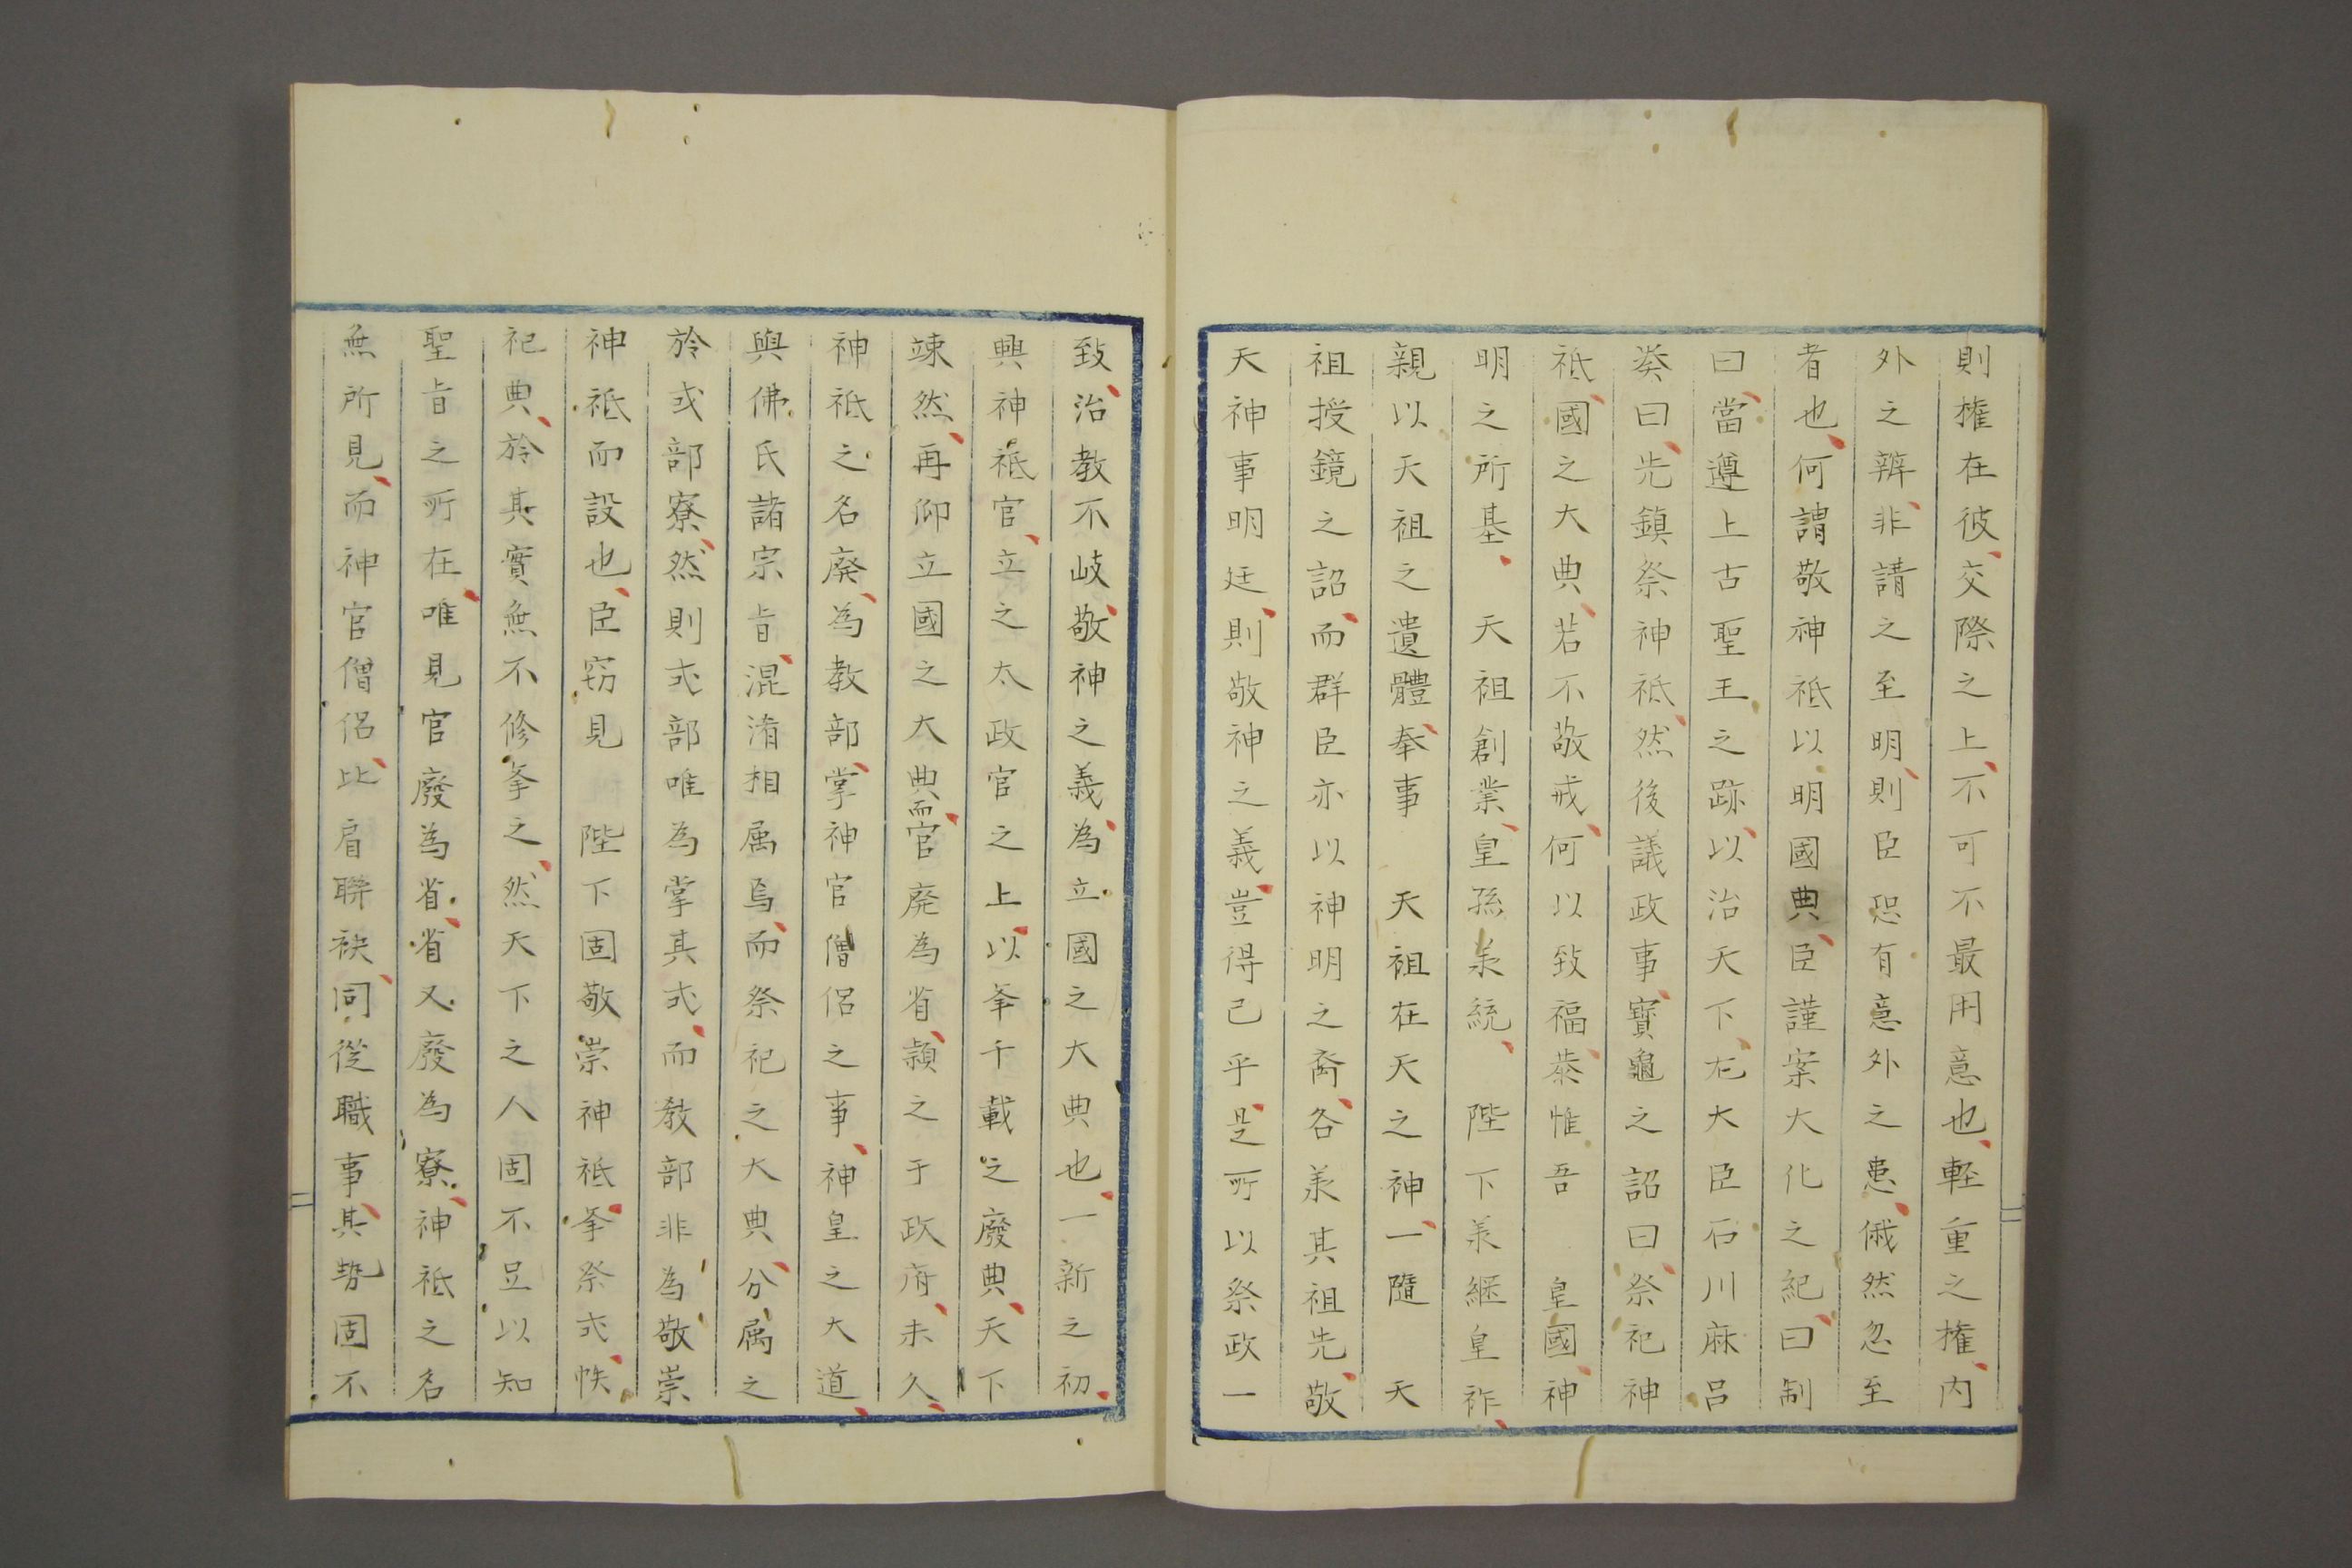 則権在彼交際之上不可不最用意也軽重之権内
外之辨非請之至明則臣恐有意外之患俄然忽至
者也何謂敬神祇以明國典臣謹案大化之紀曰制
曰當遵上古聖王之跡以治天下左大臣石川麻呂
奏曰先鎮祭神祇然後議政事寳龜之詔曰祭祀神
祇國之大典若不敬戒何以致福恭惟吾 皇國神
明之所基 天祖創業皇孫承統 陛下承継皇祚
親以天祖之遺體奉事 天祖在天之神一隨 天
祖授鏡之詔而群臣亦以神明之裔各承其祖先敬
天神事明廷則敬神之義豈得已乎是所以祭政一
致治教不岐敬神之義為立國之大典也一新之初
興神祇官立之太政官之上以挙千載之廢典天下
竦然再仰立國之大典而官廃為省穎之于政府未久
神祇之名廃為教部掌神官僧侶之事神皇之大道
與佛氏諸宗旨混淆相属焉而祭祀之大典分属之
於式部寮然則式部唯為掌其式而教部非為敬崇
神祇而設也臣窃見 陛下固敬崇神祇挙祭式帙
祀典於其實無不修挙之然天下之人固不足以知
聖旨之所在唯見官廢為省省又廢為寮神祇之名
無所見而神官僧侶比肩聯袂同從職事其勢固不
二
二